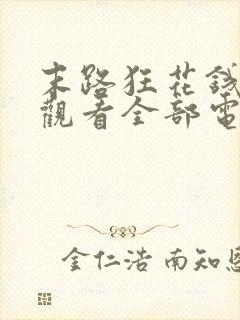 末路狂花錢
觀看全部電
金仁浩 南知恩